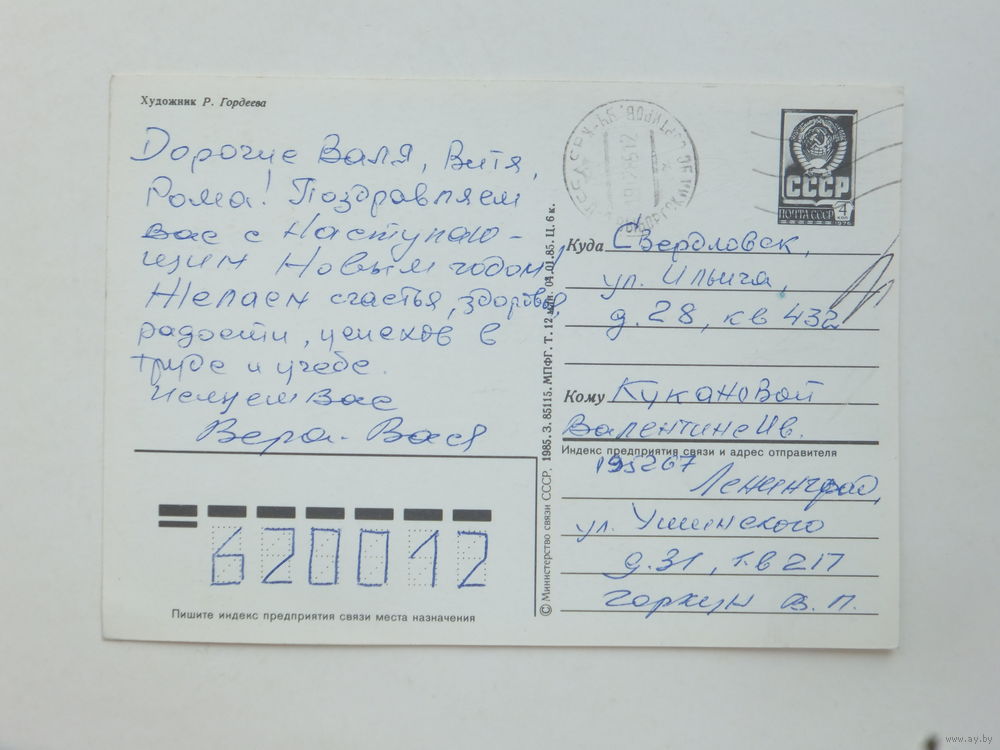 Художник Р. Гордеева
Дорогие Валя, Витя,
Рома! Поздравляем
вас с Наступаю-
щим Новым годом!
Желаем счастья, здоровья,
радости, успехов в
труде и учебе.
Целуем вас
Вера - Вася
620012
Пишите индекс предприятия связи места назначения
© Министерство связи СССР, 1985. З. 85115. МПФГ. Т. 12 млн. 04.01.85. Ц. 6 к.
СССР
ПОЧТА СССР 4 коп
1976
Куда Свердловск,
ул. Ильича,
д. 28, кв 432
Кому Кукановой
Валентине Ив.
Индекс предприятия связи и адрес отправителя
195267
Ленинград,
ул. Ушинского
д. 31, кв 217
Горкун В. П.
www.ay.by